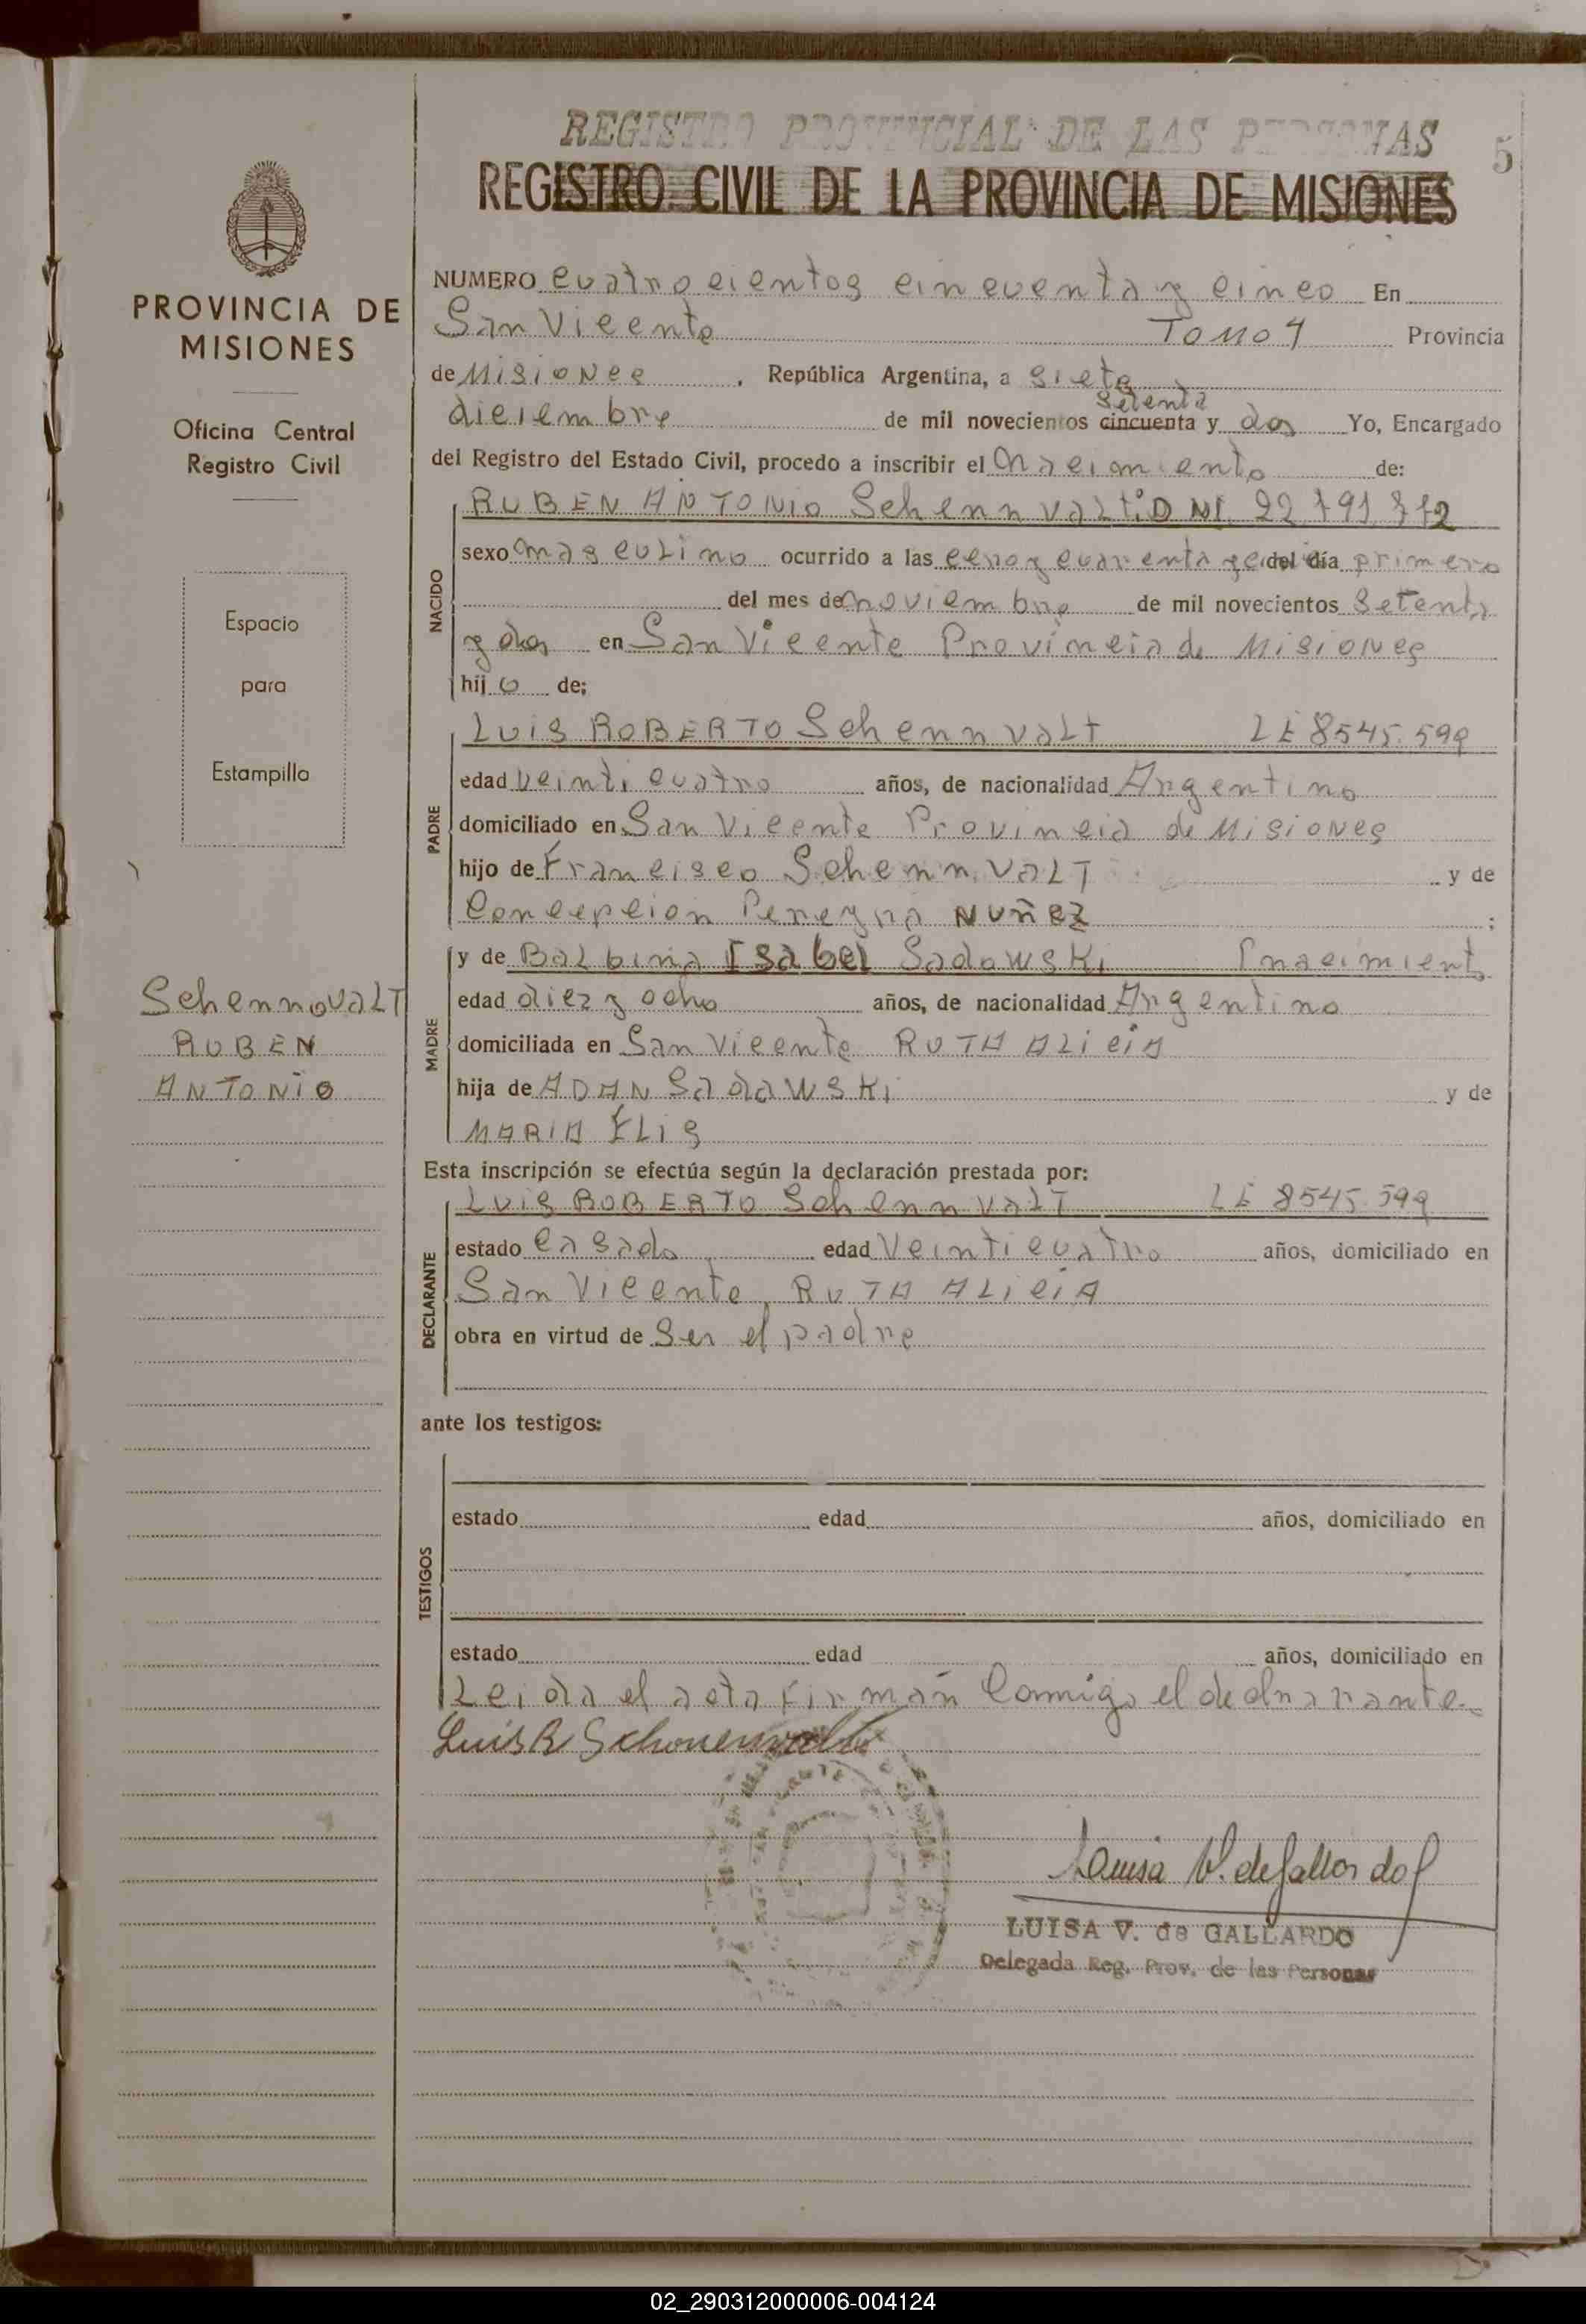 REGISTRO PROVINCIAL DE LAS PERSONAS
5
REGISTRO CIVIL DE LA PROVINCIA DE MISIONES
PROVINCIA DE
MISIONES
Oficina Central
Registro Civil
Espacio
para
Estampilla
SchennovaLT
RUBEN
ANTONIO
NUMERO cuatrocientos cincuenta y cinco En
San Vicente TOMO Provincia
de Misiones, República Argentina, a siete
setenta
diciembre de mil novecientos cincuenta y dos Yo, Encargado
del Registro del Estado Civil, procedo a inscribir el nacimiento de:
NACIDO
RUBEN ANTONIO SchennvaLt DNI 22
sexo masculino ocurrido a las cero y cuarenta y del día primero
del mes de noviembre de mil novecientos setenta
y dos en San Vicente Provincia de Misiones
hijo de;
PADRE
LUIS ROBERTO SchennvaLt LE 8545.599
edad veinticuatro años, de nacionalidad Argentino
domiciliado en San Vicente Provincia de Misiones
hijo de Francisco SchennvaLT y de
Concepcion Pereyra NUÑEZ;
MADRE
y de BaLbina Isabel Sadowski
edad diez y ocho años, de nacionalidad Argentino
domiciliada en San Vicente RUTA ALICIA
hija de ADAN SadawSKi y de
MARIA ELIS
Esta inscripción se efectúa según la declaración prestada por:
DECLARANTE
LUIS ROBERTO SchennvaLT LE 8545.599
estado casado edad veinticuatro años, domiciliado en
San Vicente, RUTA ALICIA
obra en virtud de Ser el padre
ante los testigos:
TESTIGOS
estado edad años, domiciliado en
estado edad años, domiciliado en
Leida el acta firman Conmigo el declarante
Luis R Schonenwalt
Louisa V. de Gallardo
LUISA V. de GALLARDO
Delegada Reg. Prov. de las Personas
02_290312000006-004124